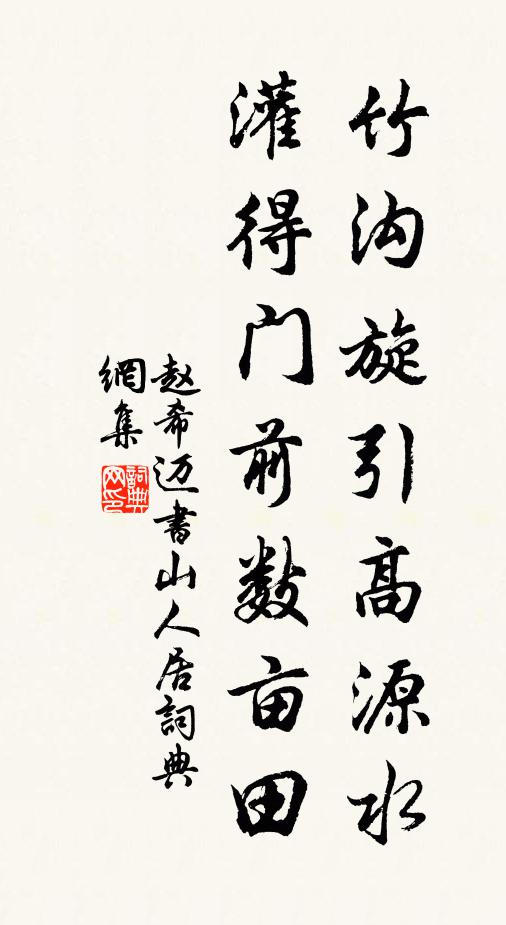 竹沟旋引高源水
灌得门前数亩田
赵希迈书山人居詞典
網集
詞典網印